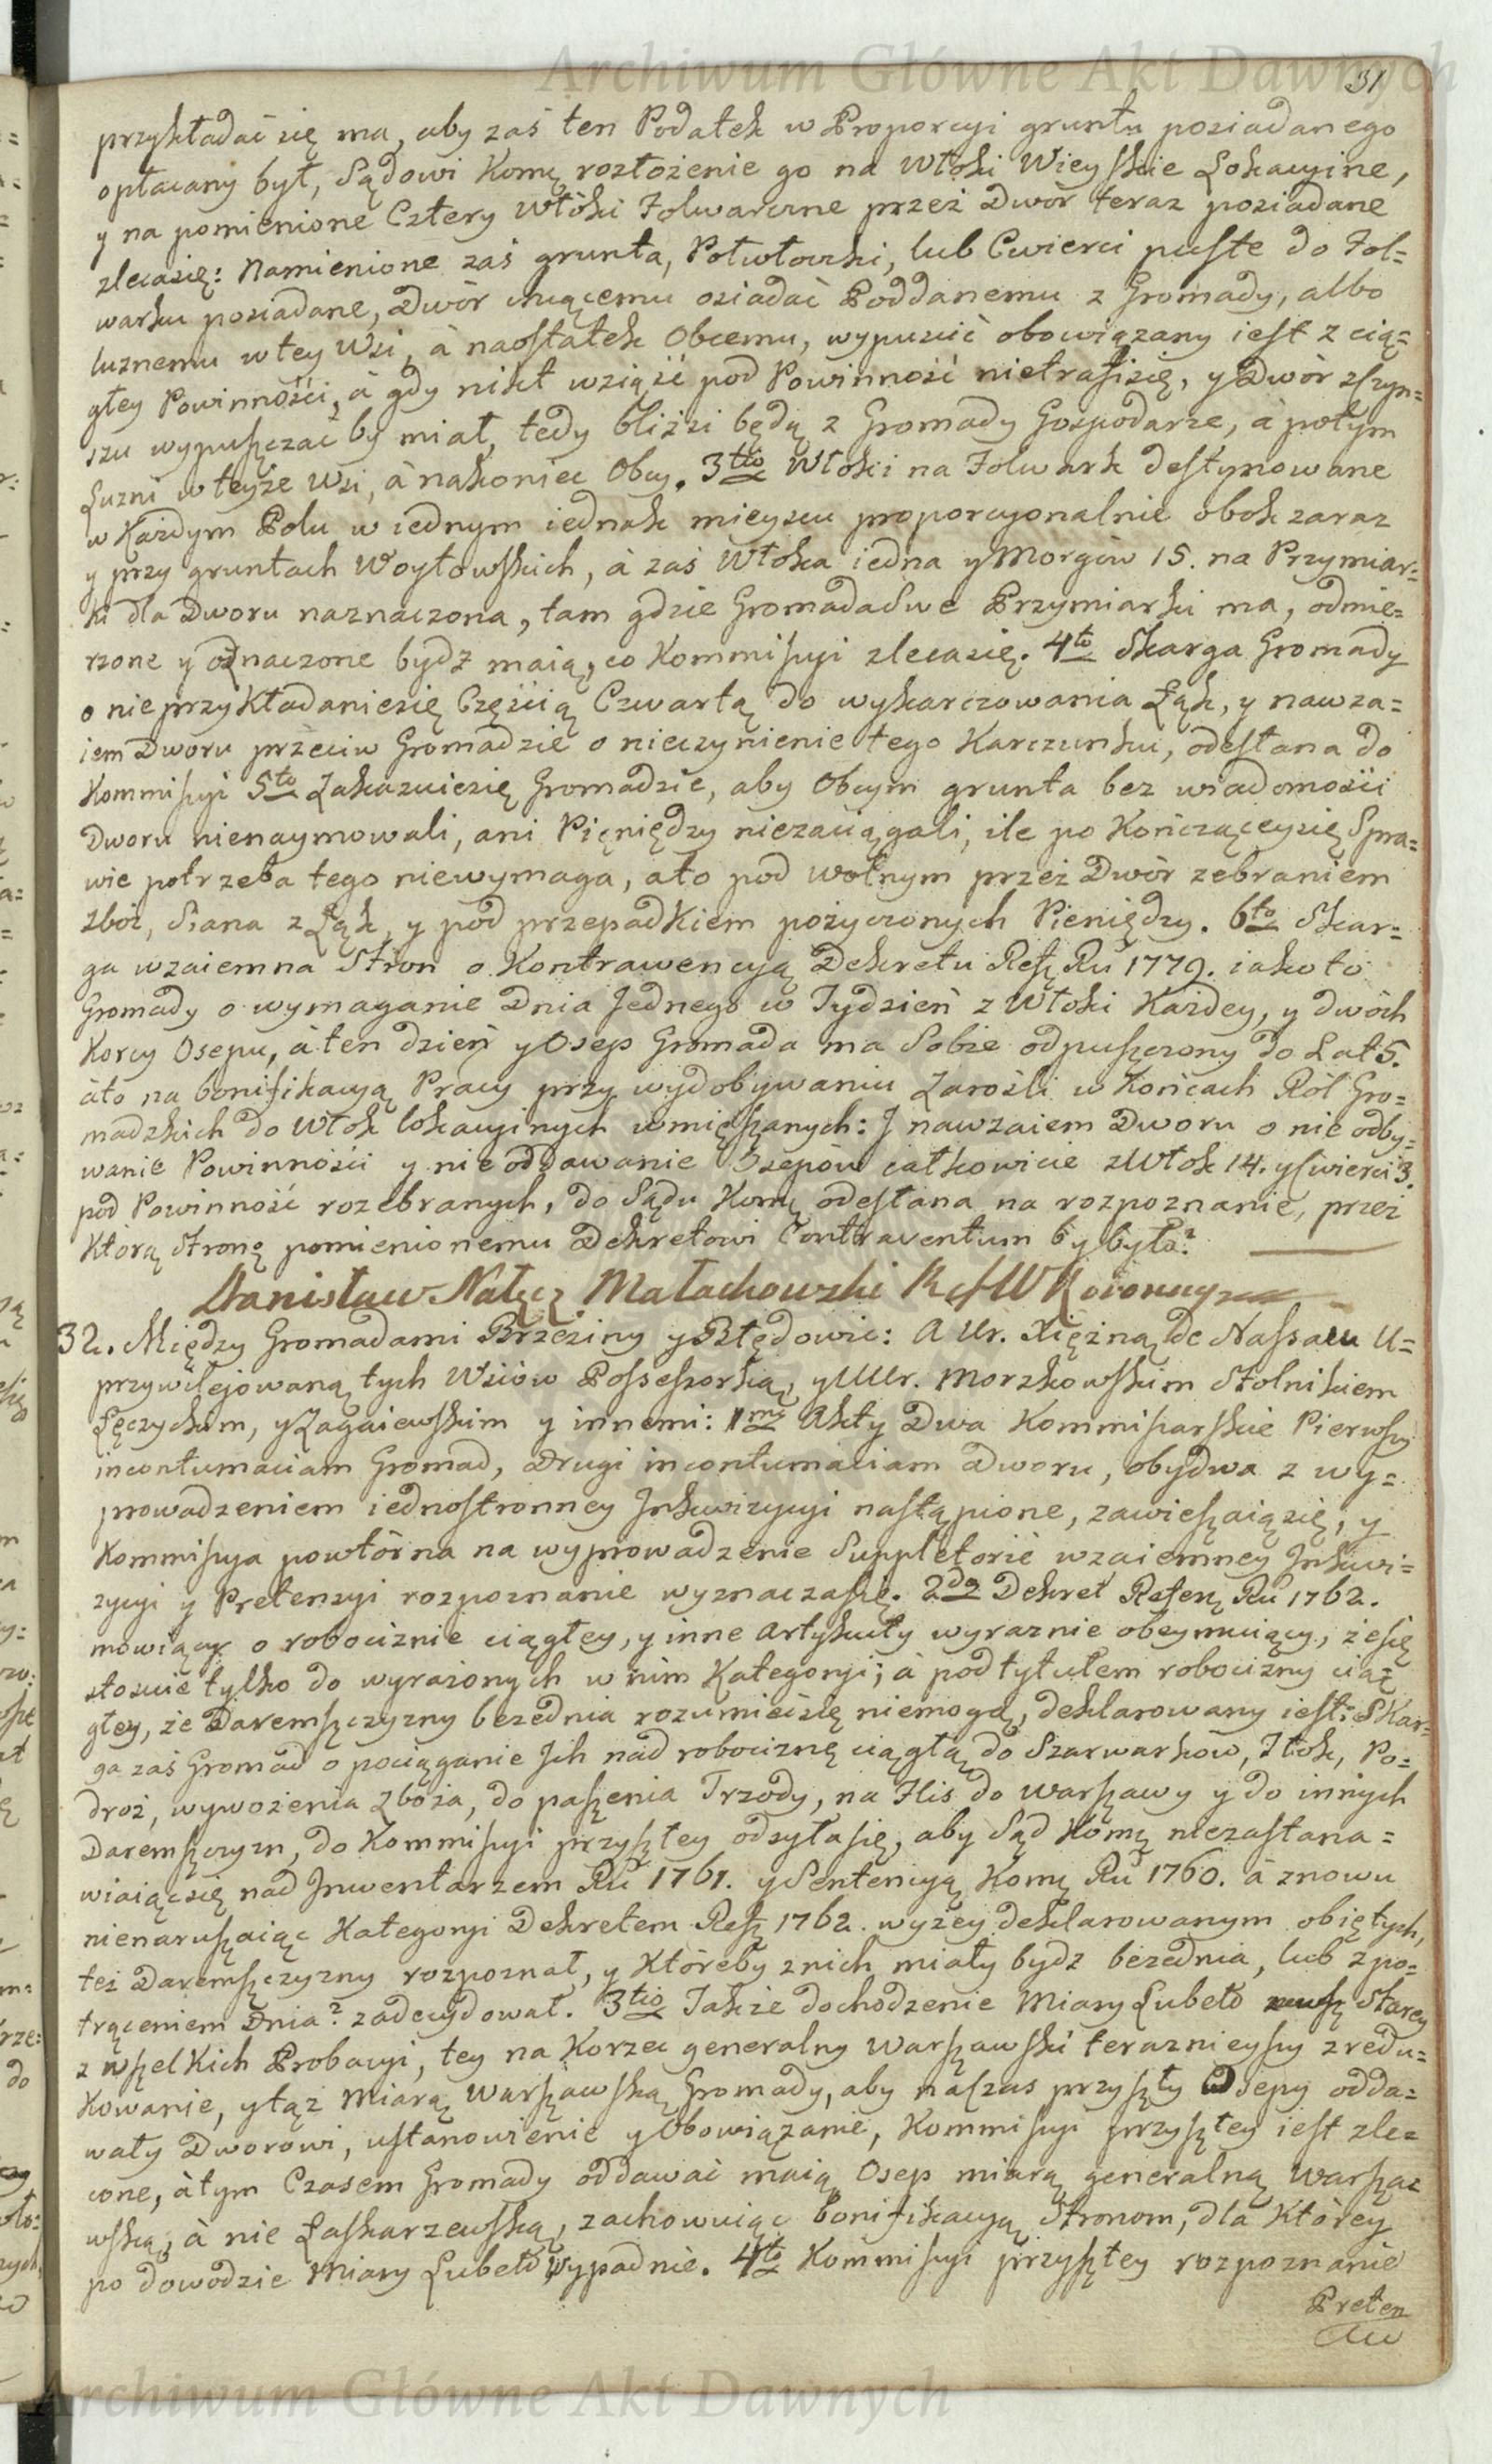 Archiwum Główne Akt Dawnych
31
przykładać się ma, aby zaś ten Podatek w Proporcyi gruntu posiadanego
opłacany był, Sądowi Komę rozłożenie go na Włóki Wieyskie Lokacyine,
y na pomienione Cztery Włóki Folwarczne przez Dwór teraz posiadane
zlecasię: Namienione zaś grunta, Połwłoczki, lub Cwierci puste do Fol=
warku posiadane, Dwór chcącemu osiadać Poddanemu z Gromady, albo
luznemu w tey Wsi, à naostatek Obcemu, wypuścić obowiązany iest z cią=
głey Powinności, à gdy nikt wziąść pod Powinność nietrafisię, y Dwór zczyn=
szu wypuszczać by miał, tedy bliżsi będą z Gromady Gospodarze, à potym
Luzni w teyże Wsi, à nakoniec Obcy. 3tio Włóki na Folwark destynowane
w Każdym Polu w iednym iednak mieyscu proporcyonalnie obok zaraz
y przy gruntach Woytowskich, à zaś Włóka iedna y Morgów 15. na Przymiar=
ki dla Dworu naznaczona, tam gdzie Gromada Swe Przymiarki ma, odmie=
rzone y oznaczone bydź maią, co Kommissyi zlecasię. 4to Skarga Gromady
o nieprzykładaniesię Częścią Czwartą do wykarczowania Łąk, y nawza=
iem Dworu przeciw Gromadzie o nieczynienie tego Karczunku, odesłana do
Kommissyi 5to Zakazuiesię Gromadzie, aby Obcym grunta bez wiadomości
Dworu nienaymowali, ani Pieniędzy niezaciągali, ile po Kończąceysię Spra=
wie potrzeba tego niewymaga, ato pod wolnym przez Dwór zebraniem
zbóż, Siana z Łąk, y pod przepadkiem pożyczonych Pieniędzy. 6to Skar=
ga wzaiemna Stron o Kontrawencyą Dekretu Refę Ru 1779. iako to
Gromady o wymaganie Dnia Jednego w Tydzień z Włóki Każdey, y dwóch
Korcy Osepu, à ten dzień y Osep Gromada ma Sobie odpuszczony do Lat 5.
àto na bonifikacyą Pracy przy wydobywaniu Zarośli w Końcach Ról Gro=
madzkich do Włók lokacyinych wmięszanych: J nawzaiem Dworu o nie odby=
wanie Powinności y nie oddawanie Osepów całkowicie z Włók 14. y Cwierci 3.
pod Powinność rozebranych, do Sądu Komę odesłana na rozpoznanie, przez
Którą Stronę pomienionemu Dekretowi Contraventum by było?
Stanisław Nałęcz Małachowski R W Koronny
32. Między Gromadami Brzeziny y Błędowic: A Ur. Xiężną de Nassau U=
przywilejowaną tych Wsiów Possessorką, y UUr. Morzkowskim Stolnikiem
Łęczyckim, y Zagaiewskim y innemi: 1mo Akty Dwa Kommissarskie Pierwszy
incontumaciam Gromad, Drugi incontumaciam Dworu, obydwa z wy=
prowadzeniem iednostronney Jnkwizycyi nastąpione, zawieszaiąsię, y
Kommissya powtórna na wyprowadzenie Suppletoriè wzaiemney Jnkwi=
zycyi y Pretensyi rozpoznanie wyznaczasię. 2do Dekret Referę Ru 1762.
mowiący o robociznie ciągłey, y inne Artykuły wyraznie obeymuiący, że się
stosuie tylko do wyrażonych w nim Kategoryi; à pod tytułem robocizny cią=
głey, że Daremszczyzny bezednia rozumiećsię niemogą, deklarowany iest: Skar=
ga zaś Gromad o pociąganie Jch nad robociznę ciągłą do Szarwarków, Tłók, Po=
dróż, wywożenia Zboża, do paszenia Trzody, na Flis do Warszawy y do innych
Daremszczyzn, do Kommissyi przyszłey odsyłasię, aby Sąd Komę niezastana=
wiaiącsię nad Jnwentarzem Ru 1761. y Sentencyą Komę Ru 1760. à znowu
nienaruszaiąc Kategoryi Dekretem Refę 1762. wyżey deklarowanym obiętych,
też Daremszczyzny rozpoznał, y Któreby znich miały bydz bezednia, lub z po=
trąceniem Dnia? zadecydował. 3tio Także dochodzenie Miary Lubelo Starey
z wszelkich Probacyi, tey na Korzec generalny Warszawski teraznieyszy zredu=
kowanie, y tąż Miarą Warszawską Gromady, aby naczas przyszły Osepy odda=
wały Dworowi, ustanowienie y Obowiązanie, Kommissyi przyszłey iest zle=
cone, àtym Czasem Gromady oddawać maią Osep miarą generalną Warsza=
wską, à nie Łaskarzewską, zachowuiąc bonifikacyą Stronom, dla Którey
po dowodzie Miary Lubelo wypadnie. 4to Kommissyi przyszłey rozpoznanie
Preten
Archiwum Główne Akt Dawnych